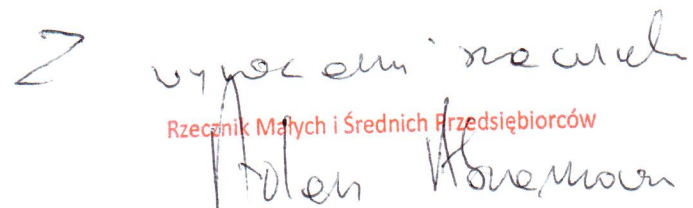 Z wyrazami szacunku
Rzecznik Małych i Średnich Przedsiębiorców
Adam Abramowicz